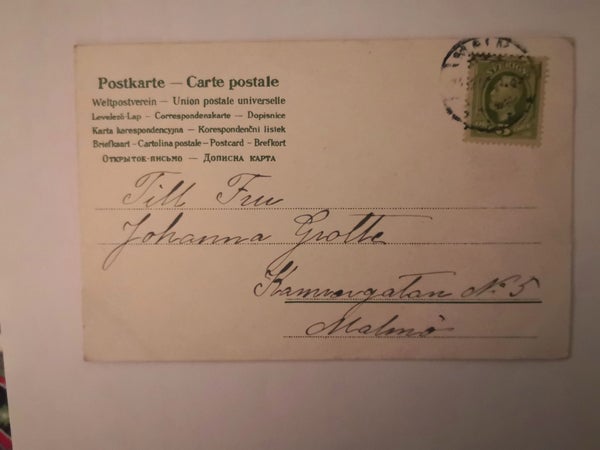 Postkarte — Carte postale
Weltpostverein — Union postale universelle
Levelező-Lap — Correspondenskarte — Dopisnice
Karta korespondencyjna — Korespondenční lístek
Briefkaart — Cartolina postale — Postcard — Brefkort
Открытое-письмо — Дописна карта
SVERIGE
5
Till Fru
Johanna Grotte
Kamrergatan No 5
Malmö